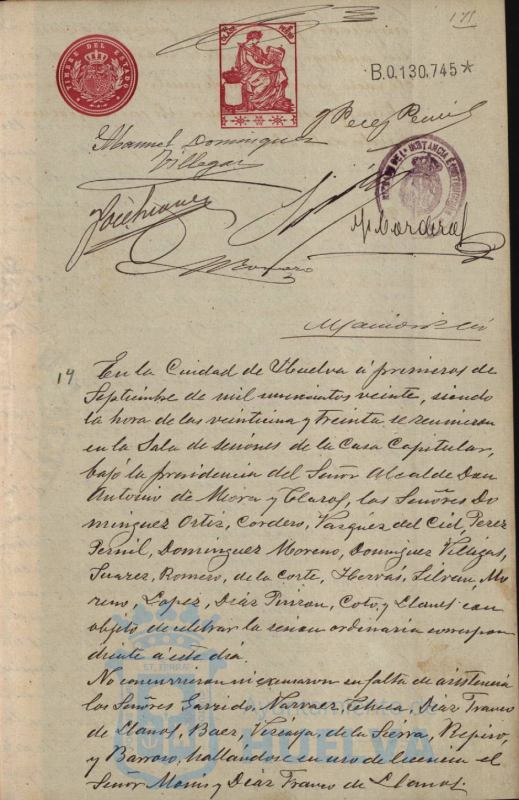 171
TIMBRE DEL ESTADO
B.0.130.745*
Manuel Dominguez
Villegas
J Perez Pernil
J. Cordero
Romero
14
En la Ciudad de Huelva á primeros de
Septiembre de mil novecientos veinte, siendo
la hora de las veintiuna y treinta se reunieron
en la Sala de sesiones de la Casa Capitular,
bajo la presidencia del Señor Alcalde Don
Antonio de Mora y Claros, los Señores Do
minguez Ortiz, Cordero, Vazquez del Cid, Perez
Pernil, Dominguez Moreno, Dominguez Villegas,
Suarez, Romero, de la Corte, Hervás, Silvan, Mo
reno, Lopez, Diaz Pinzon, Coto, y Llanes con
objeto de celebrar la sesion ordinaria correspon
diente a este dia.
No concurrieron ni excusaron su falta de asistencia
los Señores Garrido, Narvaez, Diaz Franco
de Llanos, Baez, Vizcaya, de la Sierra, Repiso,
y Barroso, hallándose en uso de licencia el
Señor Monis y Diaz Franco de Llanos.
HUELVA